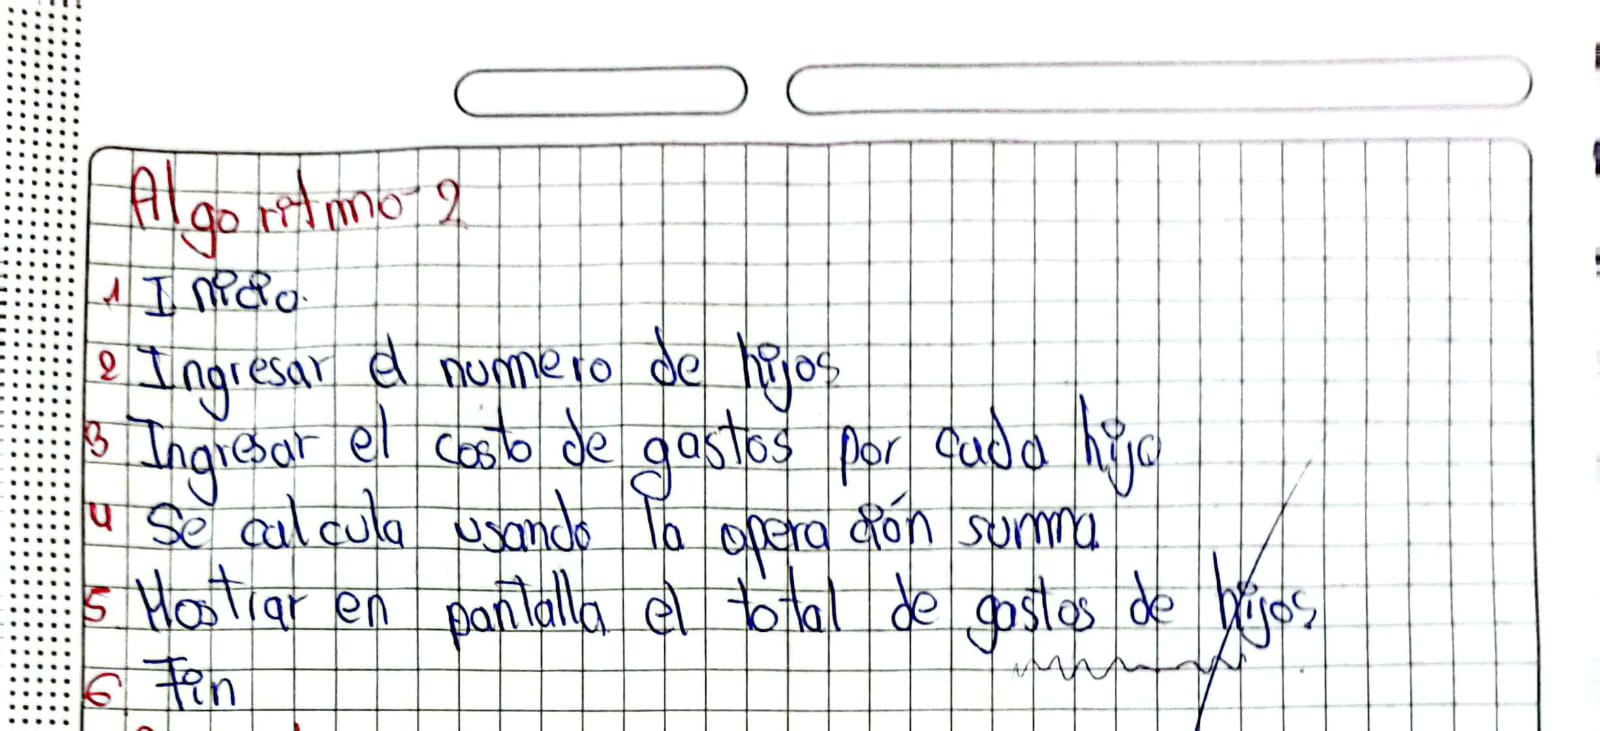 Algoritmo 2
1 Inicio.
2 Ingresar el numero de hijos
3 Ingresar el costo de gastos por cada hijo
4 Se calcula usando la operación suma
5 Mostrar en pantalla el total de gastos de hijos
6 Fin